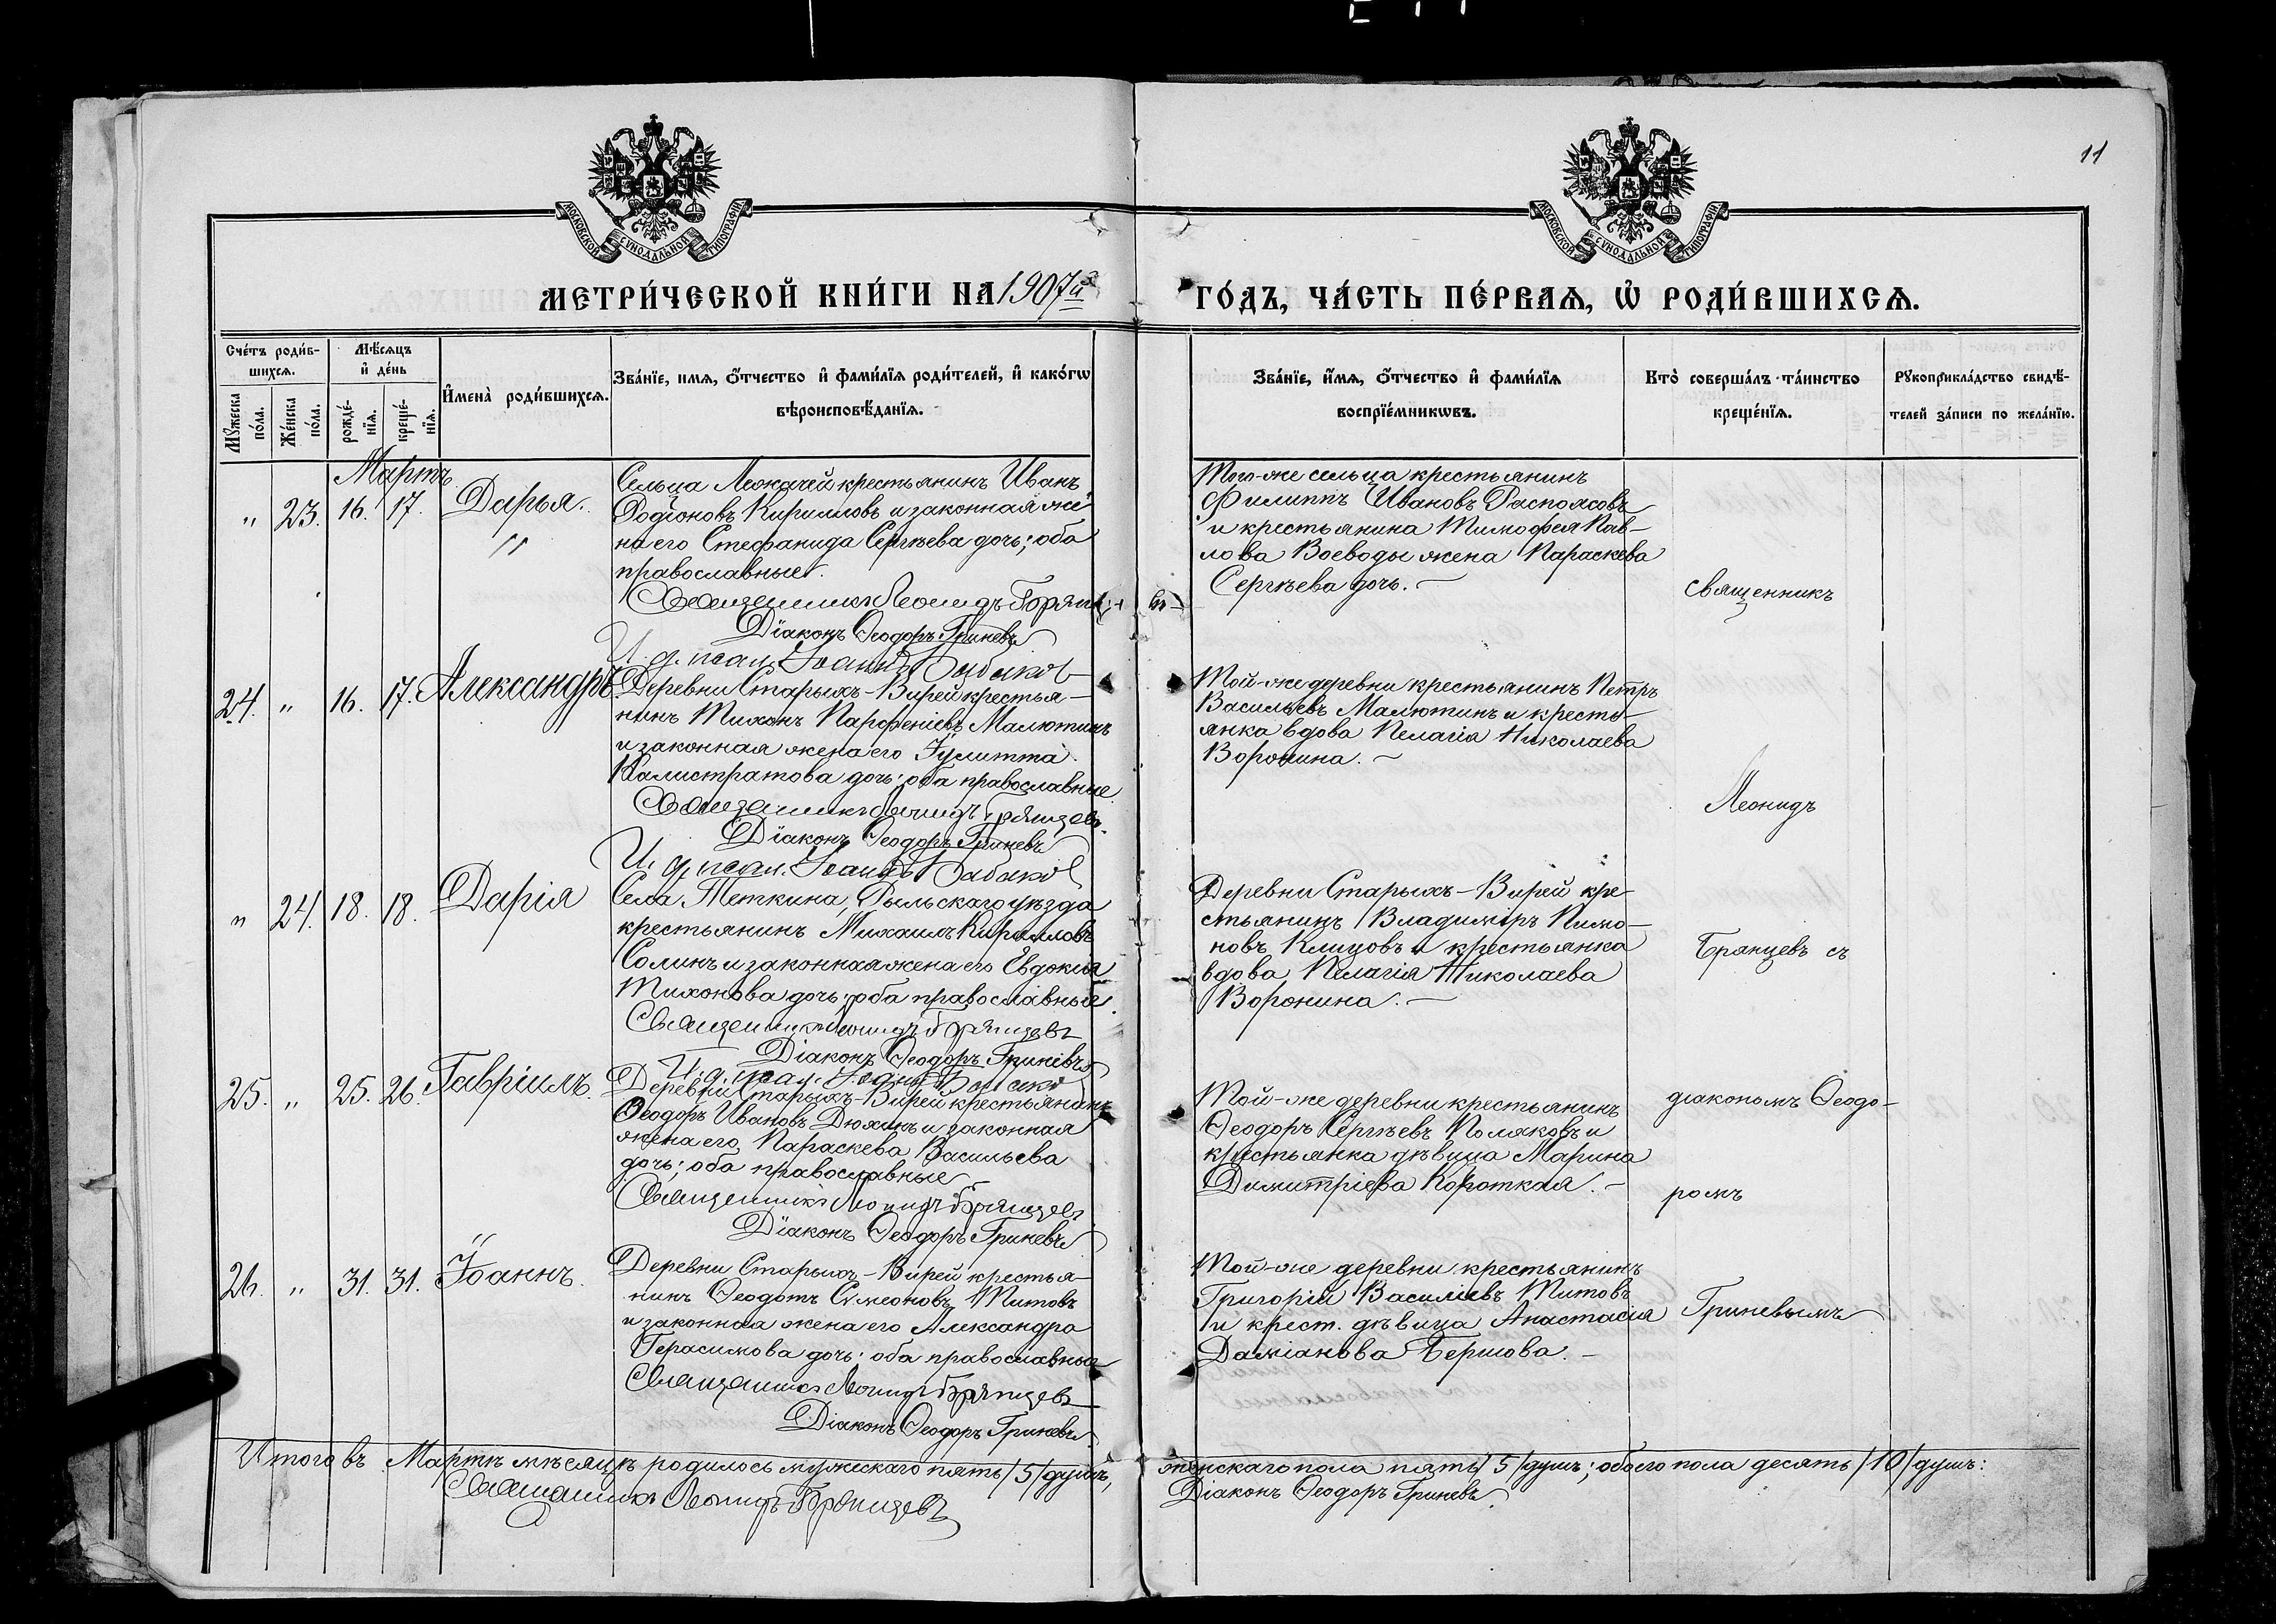 11
МОСКОВСКОЙ СѴНОДАЛЬНОЙ ТИПОГРАФІИ
МОСКОВСКОЙ СѴНОДАЛЬНОЙ ТИПОГРАФІИ
МЕТРИ́ЧЕСКОЙ КНИ́ГИ НА 1907й
ГО́ДЪ, ЧА́СТЬ ПЕ́РВАЯ, Ѡ҆ РОДИ́ВШИХСЯ.
Сче́тъ роди́в-
шихся.
Мѣ́сяцъ
и҆ де́нь
Мꙋ́жеска
по́ла.
Же́нска
по́ла.
рожде́-
нїѧ.
креще́-
нїѧ.
И҆мена̀ роди́вшихся.
Зва́нїе, имя, ѻ҆́тчество и҆ фами́лїя роди́телей, и҆ како́гѡ
вѣроисповѣ́данїя.
Зва́нїе, и҆́мя, ѻ҆́тчество и҆ фами́лїя
воспрїе́мникѡвъ.
Кто̀ соверша́лъ та́инство
креще́нїя.
Рꙋкоприкла́дство свидѣ́-
телей за́писи по жела́нїю.
Мартъ
" 23. 16. 17. Дарья.
Сельца Лежачей крестьянинъ Иванъ
Родіоновъ Кирилловъ и законная же-
на его Стефанида Сергѣева дочь; оба
православные.
Священникъ Леонидъ Брянцевъ
Діаконъ Ѳеодоръ Гриневъ
И. д. псал. Іоаннъ
Того-же сельца крестьянинъ
Филиппъ Ивановъ Распоясовъ
и крестьянина Тимофея Пав-
лова Воеводы жена Параскева
Сергѣева дочь.
24. " 16. 17. Александръ
Деревни Старыхъ-Вирей крестья-
нинъ Тихонъ Парфеніевъ Малютинъ
и законная жена его Іулитта
Калистратова дочь; оба православные
Священникъ Леонидъ Брянцевъ.
Діаконъ Ѳеодоръ Гриневъ
И. д. псал. Іоаннъ
Той-же деревни крестьянинъ Петръ
Васильевъ Малютинъ и кресть-
янка вдова Пелагія Николаева
Воронина.
" 24. 18. 18. Дарія
Села Теткина, Рыльскаго уѣзда
крестьянинъ Михаилъ Кирилловъ
Солинъ и законная жена его Евдокія
Тихонова дочь; оба православные.
Священникъ Леонидъ Брянцевъ
Діаконъ Ѳеодоръ Гриневъ
И. д. псал. Іоаннъ
Деревни Старыхъ-Вирей кре-
стьянинъ Владиміръ Пимо-
новъ Клицовъ и крестьянка
вдова Пелагія Николаева
Воронина.
25. " 25. 26. Гавріилъ.
Деревни Старыхъ-Вирей крестьянинъ
Ѳеодоръ Ивановъ Дюжинъ и законная
жена его Параскева Васильева
дочь; оба православные
Священникъ Леонидъ Брянцевъ
Діаконъ Ѳеодоръ Гриневъ
Той-же деревни крестьянинъ
Ѳеодоръ Сергѣевъ Поляковъ и
крестьянка дѣвица Марина
Димитріева Короткая.
26. " 31. 31. Іоаннъ.
Деревни Старыхъ-Вирей крестья-
нинъ Ѳеодотъ Сѵмеоновъ Титовъ
и законная жена его Александра
Герасимова дочь; оба православные
Священникъ Леонидъ Брянцевъ
Діаконъ Ѳеодоръ Гриневъ
Той-же деревни крестьянинъ
Григорій Василіевъ Титовъ
и крест. дѣвица Анастасія
Даміанова
священникъ
Леонидъ
Брянцевъ съ
діакономъ Ѳеодо-
ромъ
Гриневымъ
Итого въ Мартѣ мѣсяцѣ родилось мужескаго пять /5/ душъ,
женскаго пола пять /5/ душъ; обоего пола десять /10/ душъ:
Священникъ Леонидъ Брянцевъ
Діаконъ Ѳеодоръ Гриневъ.